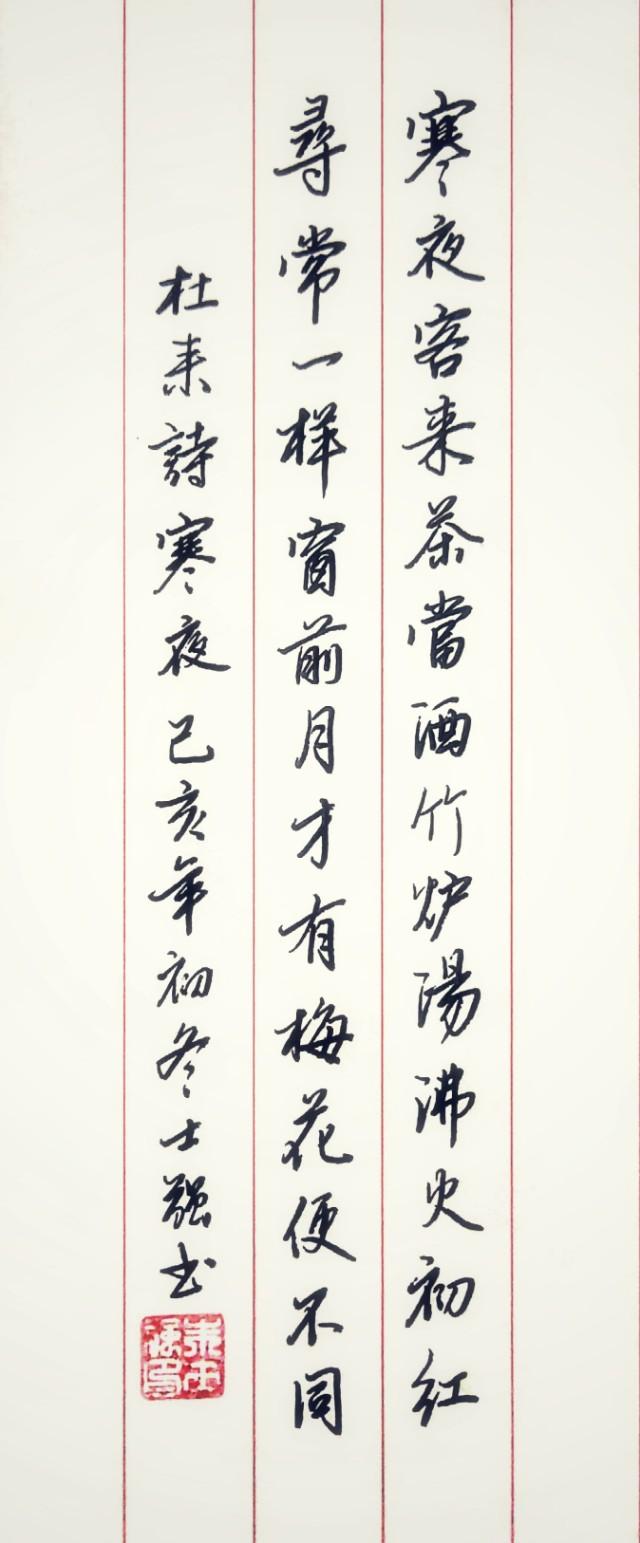 寒夜客来茶當酒竹炉陽沸火初红
尋常一样窗前月才有梅花便不同
杜耒詩寒夜己亥年初冬士强书